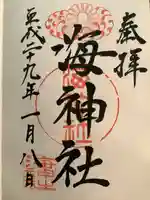 奉拝
海神社
平成二十九年一月八日